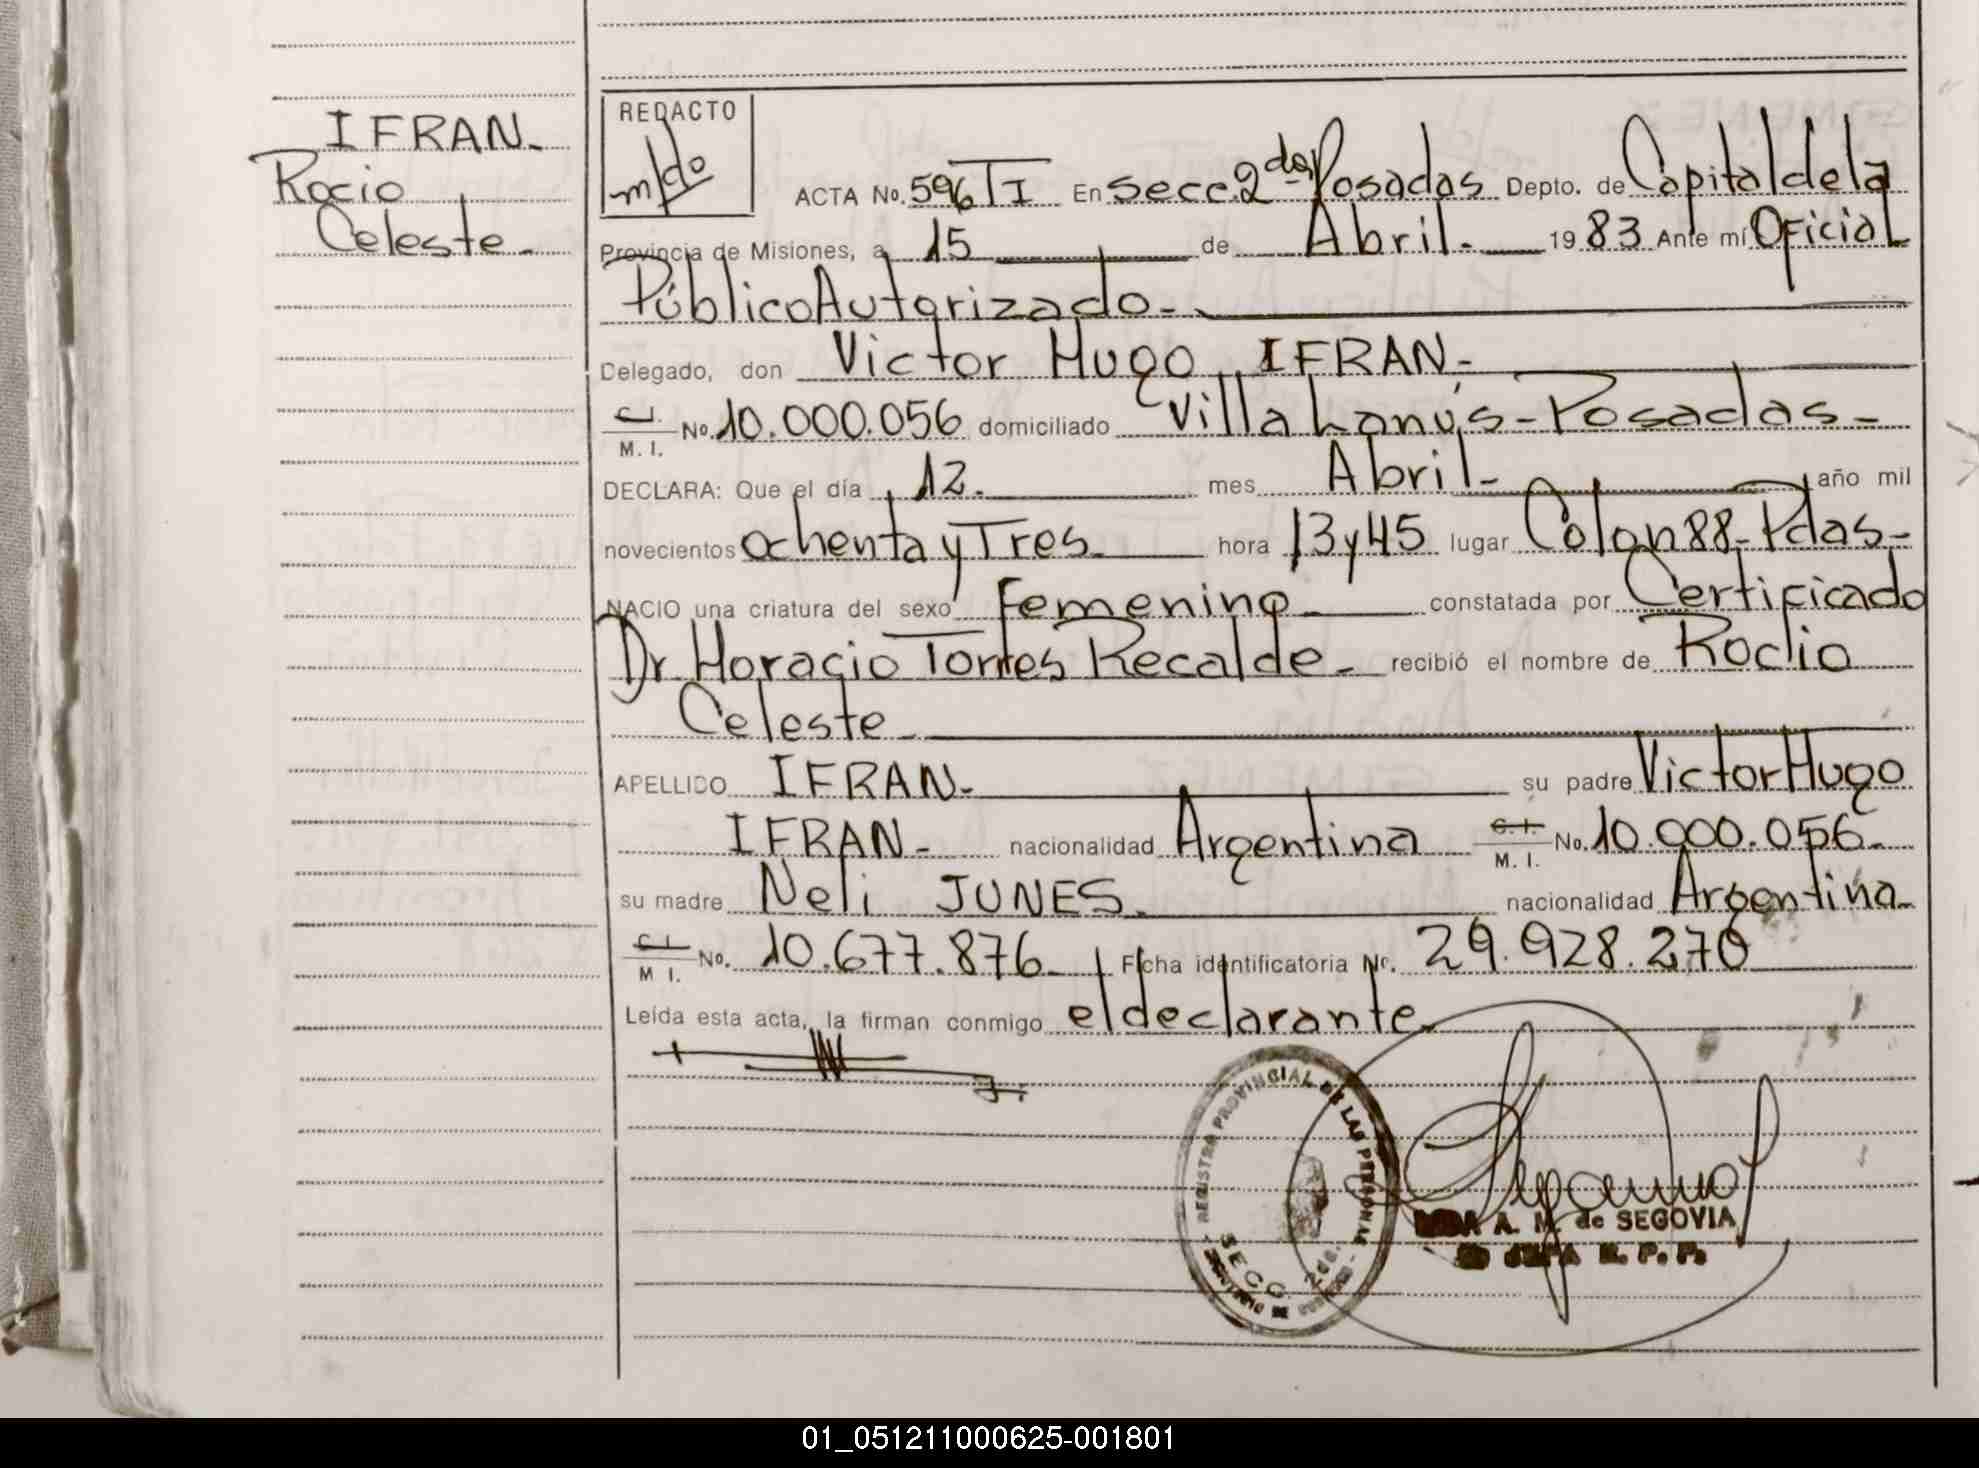 IFRAN.
Rocio
Celeste.
REDACTO
m/do
ACTA No. 596 TI En Secc. 2da Posadas Depto. de Capital de la
Provincia de Misiones, a 15 de Abril. 19 83 Ante mí Oficial
Público Autorizado.
Delegado, don Victor Hugo IFRAN-
C.I. M. I. No. 10.000.056 domiciliado Villa Lanús-Posadas-
DECLARA: Que el día 12. mes Abril- año mil
novecientos ochenta y Tres hora 13 y 45 lugar Colon 88-Pdas-
NACIO una criatura del sexo Femenino constatada por Certificado
Dr Horacio Torres Recalde- recibió el nombre de Rocio
Celeste
APELLIDO IFRAN- su padre Victor Hugo
IFRAN- nacionalidad Argentina C.I. M. I. No. 10.000.056-
su madre Neli JUNES. nacionalidad Argentina-
C.I. M I. No. 10.677.876 Ficha identificatoria Nº. 29.928.270
Leída esta acta, la firman conmigo el declarante
REGISTRO PROVINCIAL DE LAS PERSONAS
SECC. 2da.
A. M. de SEGOVIA
JEFA R. P. P.
01_051211000625-001801